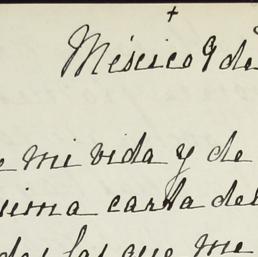 +
México 9 de
e mi vida y de
sima carta del
des las que me